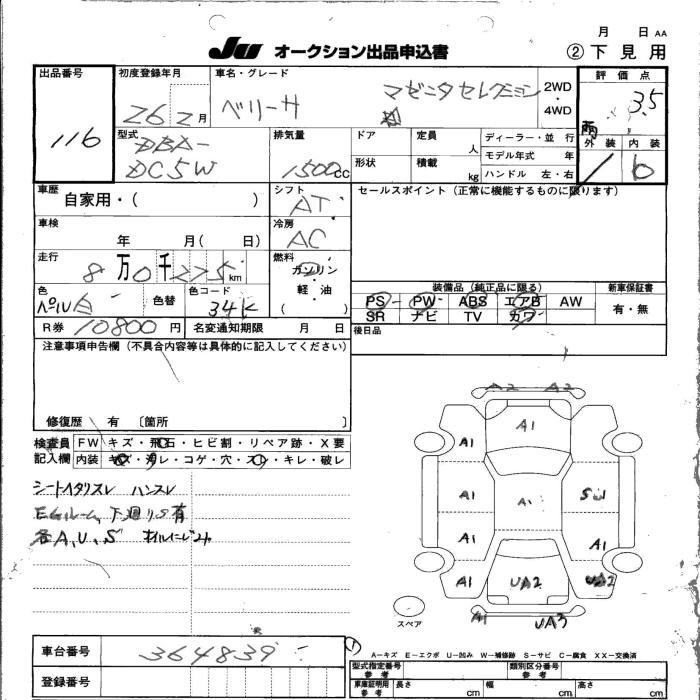 月 日 AA
JU オークション出品申込書 ② 下見用
出品番号 初度登録年月 車名・グレード 2WD・4WD 評価点
116 26年2月 ベリーサ 3.5
型式 排気量 ドア 定員 人 ディーラー・並 行 雨
DBA-DC5W 1500cc 形状 積載 kg モデル年式 年 外装 内装
ハンドル 左・右 b
車歴 シフト セールスポイント(正常に機能するものに限ります)
自家用・( ) AT
車検 冷房
年 月( 日) AC
走行 燃料
8万0千275km ガソリン
軽・油
( )
色 色替 色コード 装備品(純正品に限る) 新車保証書
パール白 34K PS PW ABS エアB AW 有・無
SR ナビ TV カワ
R券 10800円 名変通知期限 月 日 後日品
注意事項申告欄(不具合内容等は具体的に記入してください)
修復歴 有 〔箇所 〕
検査員 FW キズ・飛石・ヒビ割・リペア跡・X要
記入欄 内装 キズ・汚レ・コゲ・穴・スレ・キレ・破レ
シートヘタリスレ ハンスレ
下廻りS有
各A、U、S
A2 A2
A1
A1
A1 A1
A1 A1
A1 UA2 UA2
A1 UA3
スペア
A-キズ E-エクボ U-凹み W-補修跡 S-サビ C-腐食 XX-交換済
車台番号 364839
登録番号
型式指定番号 参考 類別区分番号 参考
車庫証明用 参考 長さ cm 幅 cm 高さ cm